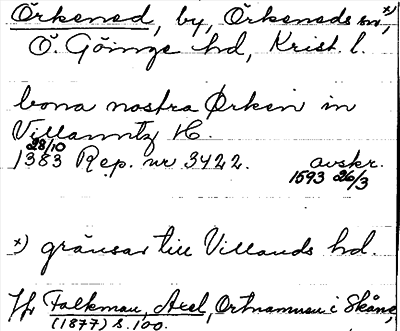 Örkened, by, Örkeneds sn, x)
Ö. Göinge hd, Krist. l.
bona nostra Ørken in
Villanntz H.
28/10
1383 Rep. nr 3422. avskr.
1593 26/3
x) gränsar till Villands hd.
Jfr Falkman, Axel, Ortnamnen i Skåne,
(1877) s. 100.